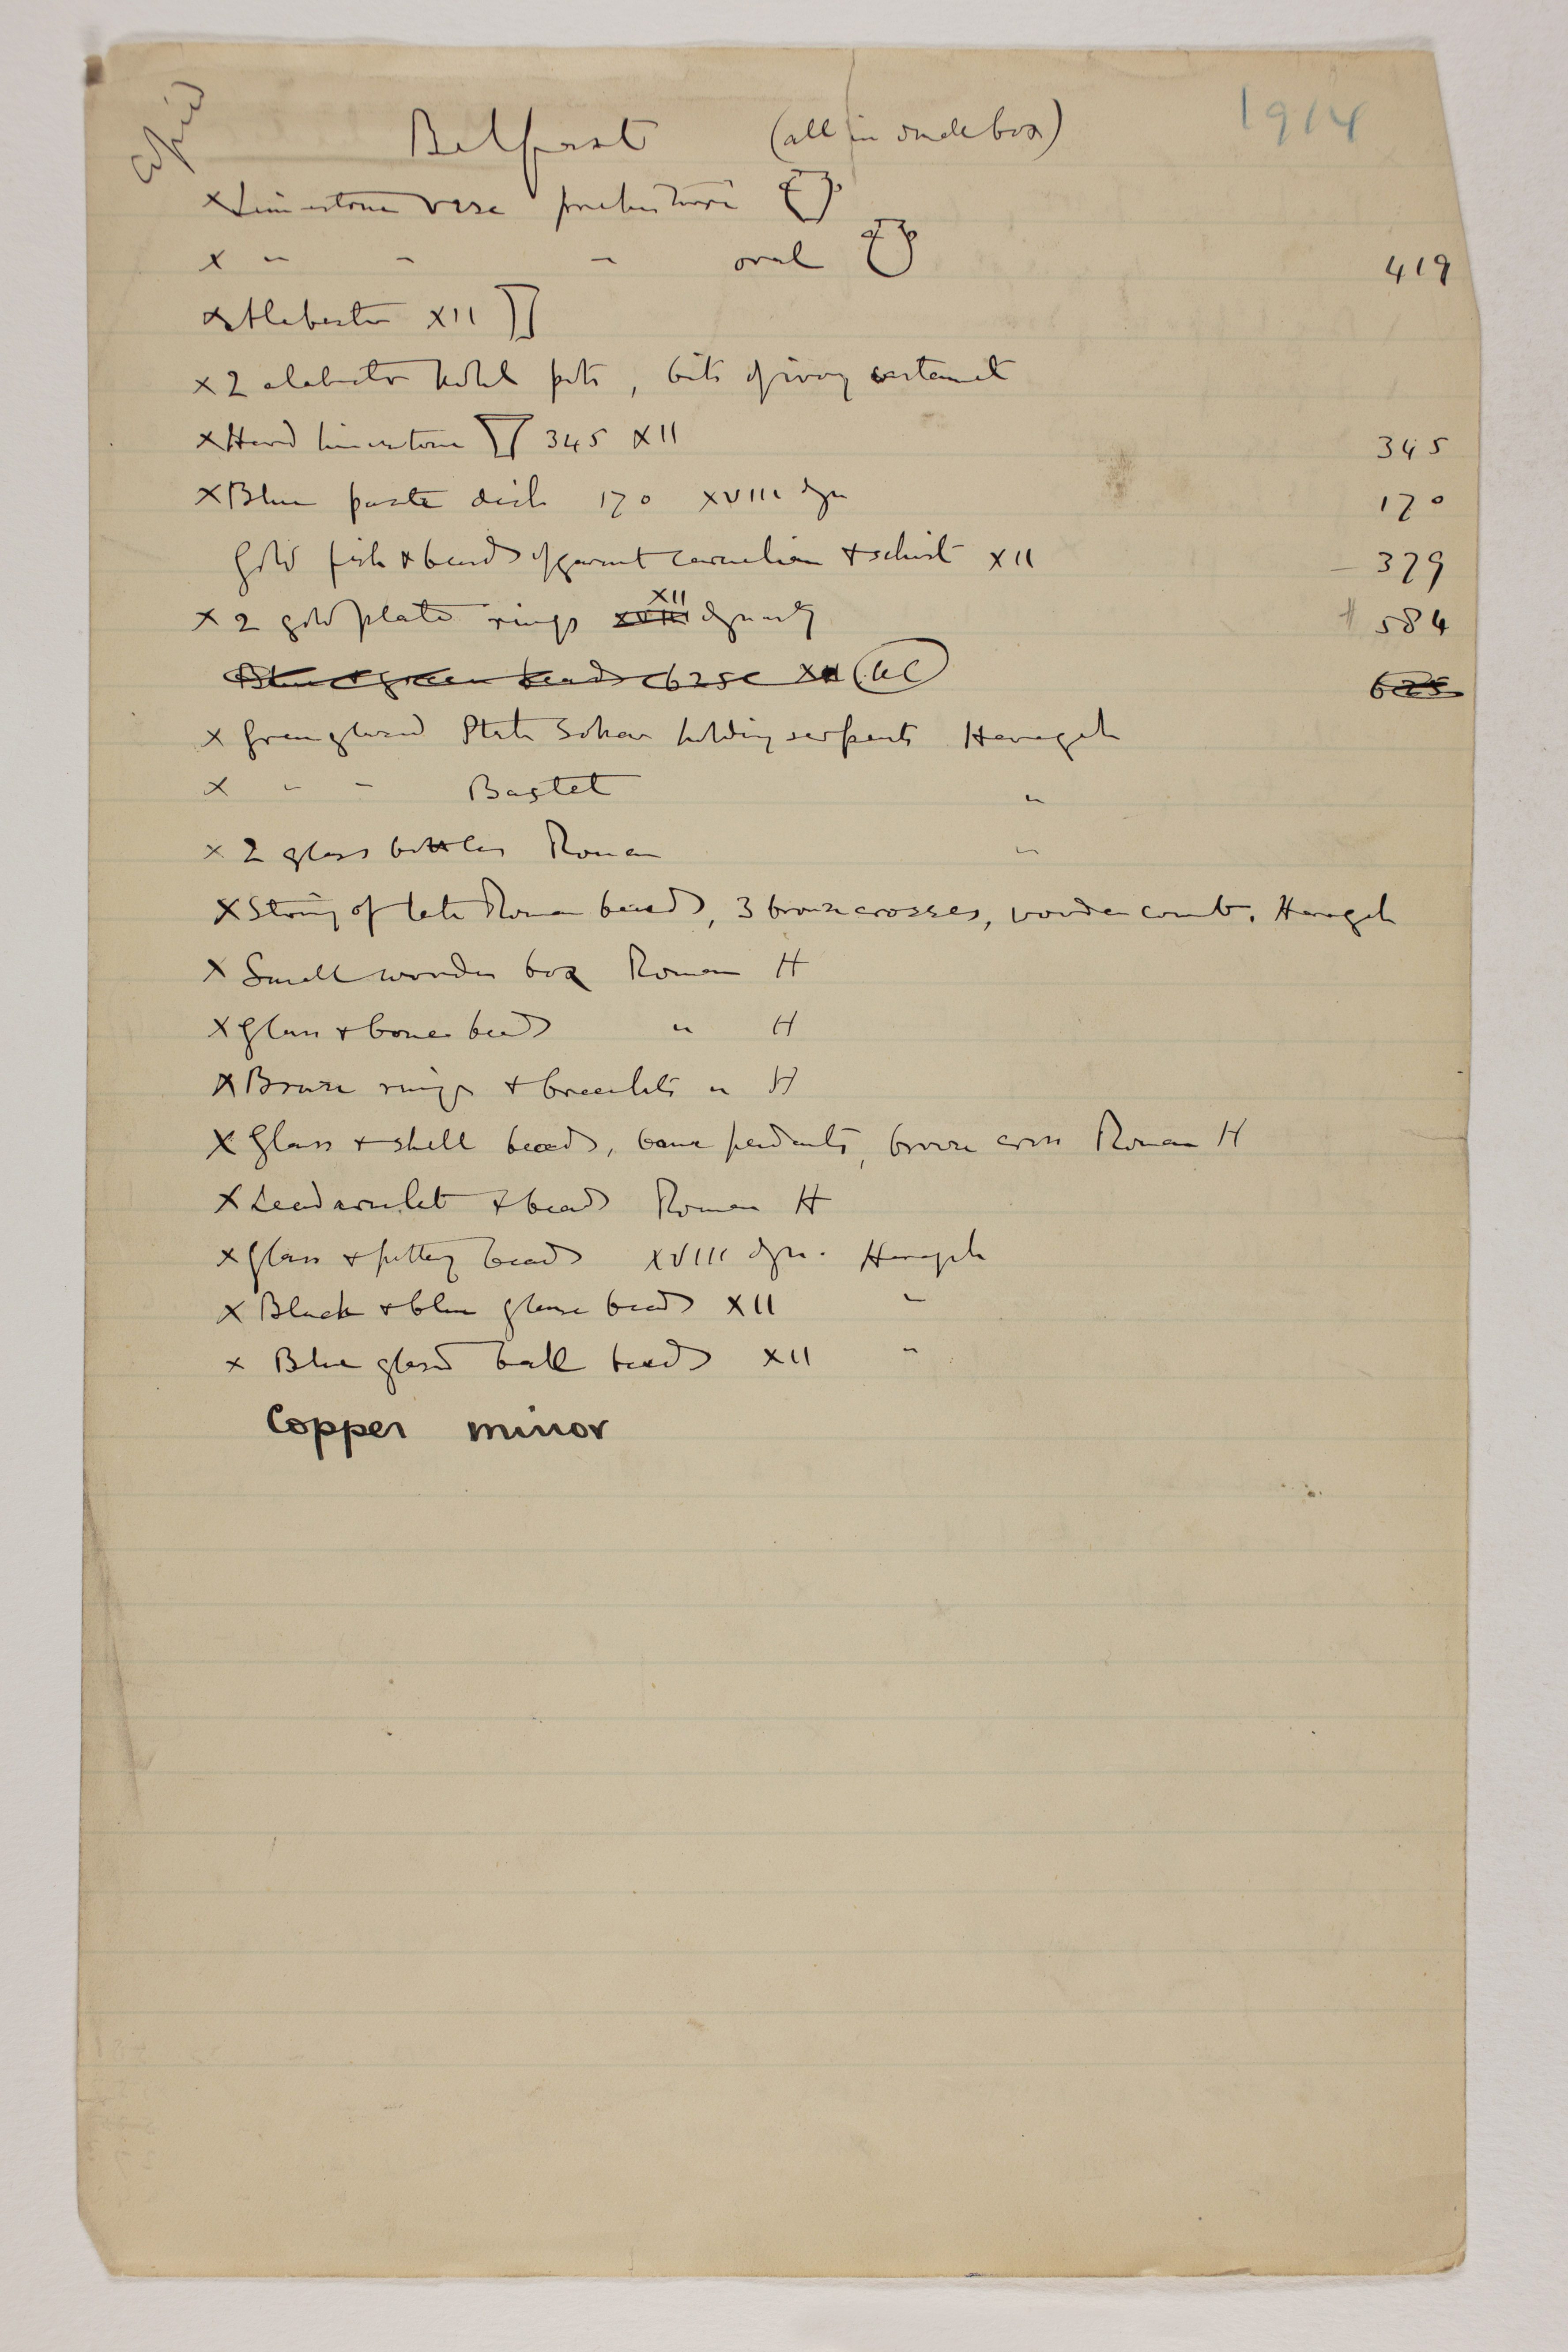 copied
Belfast (all in small box) 1914
x Limestone vase prehistoric
x " " " oval 419
x Alabaster XII
x 2 alabaster kohl pots, bits of ivory
x Hard limestone 345 XII 345
x Blue paste dish 170 XVIII dyn 170
Gold fish & beads of garnet carnelian & schist XII 379
x 2 gold plate rings XVIII XII dynasty 584
Blue & green beads 625c XII 625
x Green glazed Ptah Sokar holding serpents Harageh
x " " Bastet "
x 2 glass bottles Roman "
x String of late Roman beads, 3 bronze crosses, wooden comb. Harageh
x Small wooden box Roman H
x Glass & bone beads " H
x Bronze rings & bracelets " H
x Glass & shell beads, bone pendants, bronze cross Roman H
x Lead amulet & beads Roman H
x Glass & pottery beads XVIII dyn. Harageh
x Black & blue glaze beads XII "
x Blue glazed ball beads XII "
Copper mirror